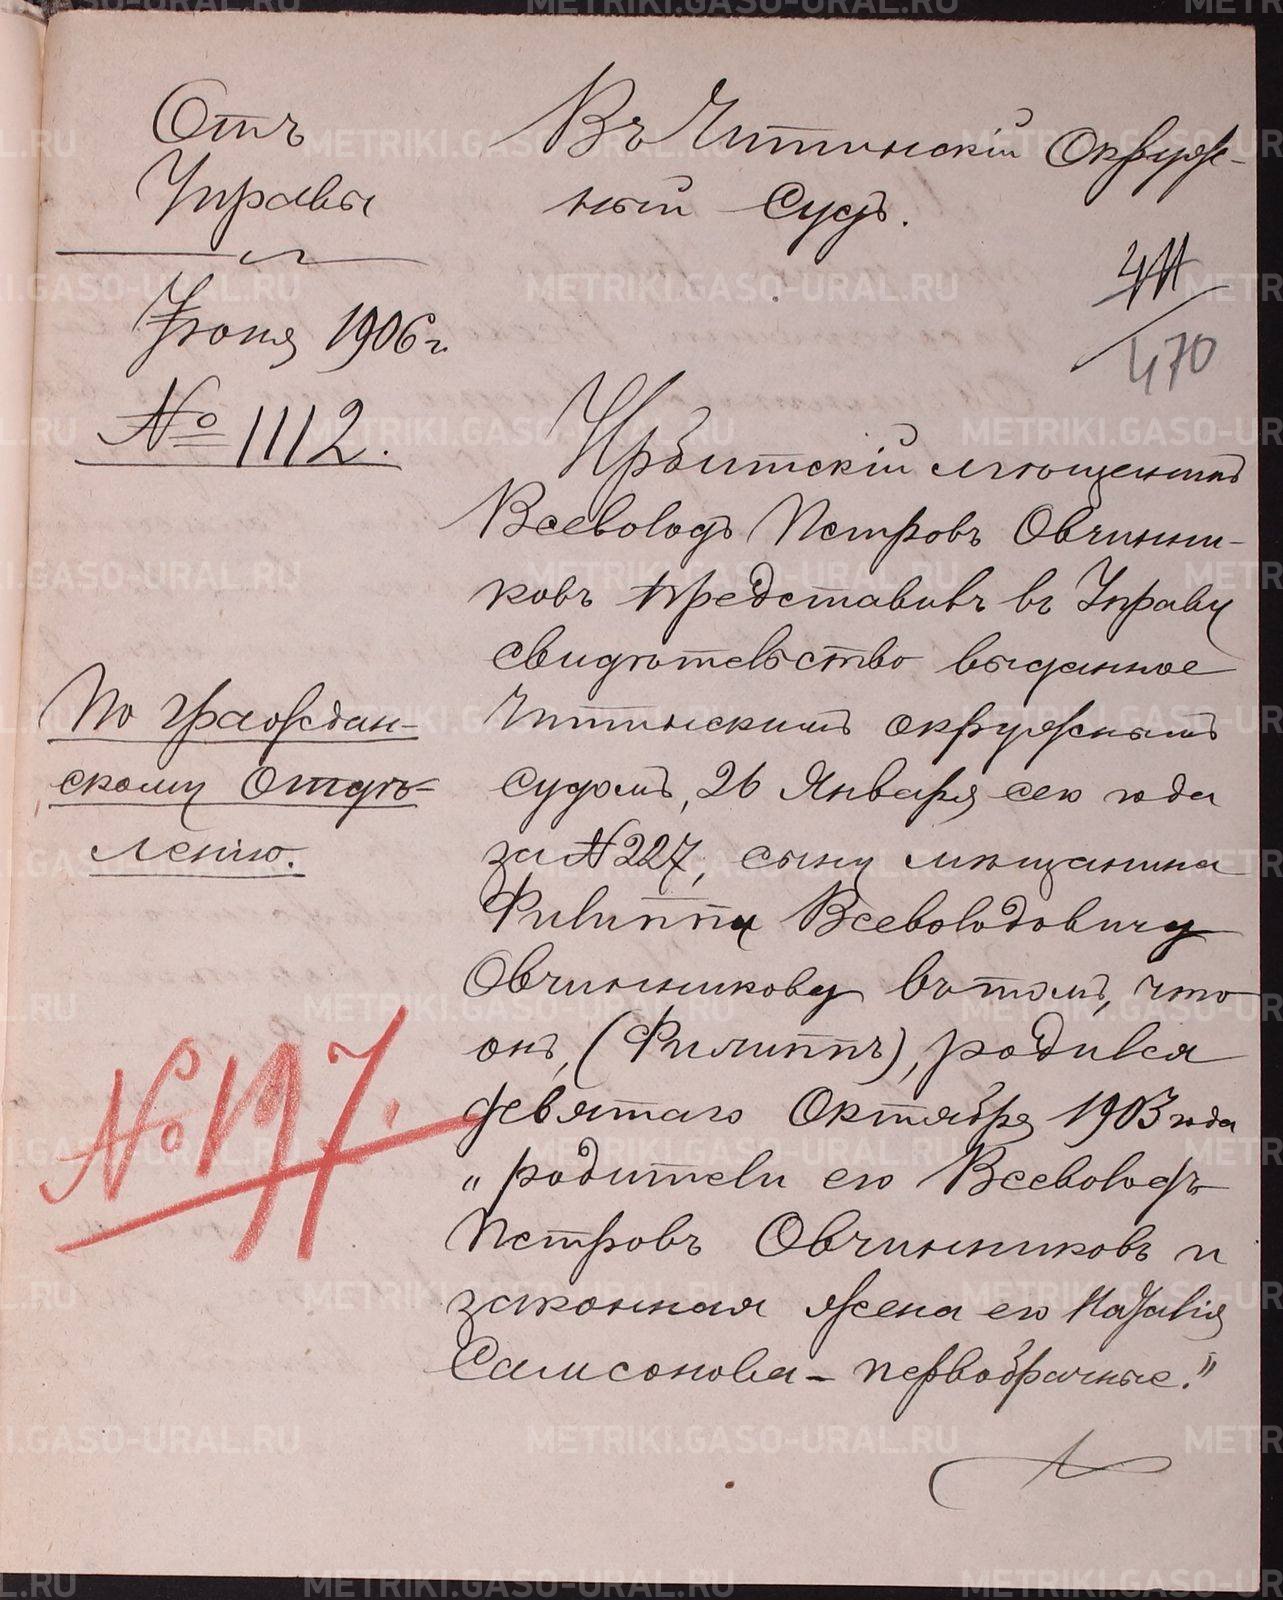 Отъ
Управы
Іюня 1906 г.
№ 1112.
По граждан-
скому Отдѣ-
ленію.
№ 197.
Въ Читинскій Окруж-
ный Судъ.
411
470
Ирбитскій мѣщанинъ
Всеволодъ Петровъ Овчинни-
ковъ представивъ въ Управу
свидѣтельство выданное
Читинскимъ окружнымъ
судомъ, 26 Января сего года
за № 227, сыну мѣщанина
Филиппу Всеволодовичу
Овчинникову въ томъ, что
онъ, (Филиппъ), родился
девятаго Октября 1903 года
„родители его Всеволодъ
Петровъ Овчинниковъ и
законная жена его Наталія
Самсонова – первобрачные."
METRIKI.GASO-URAL.RU